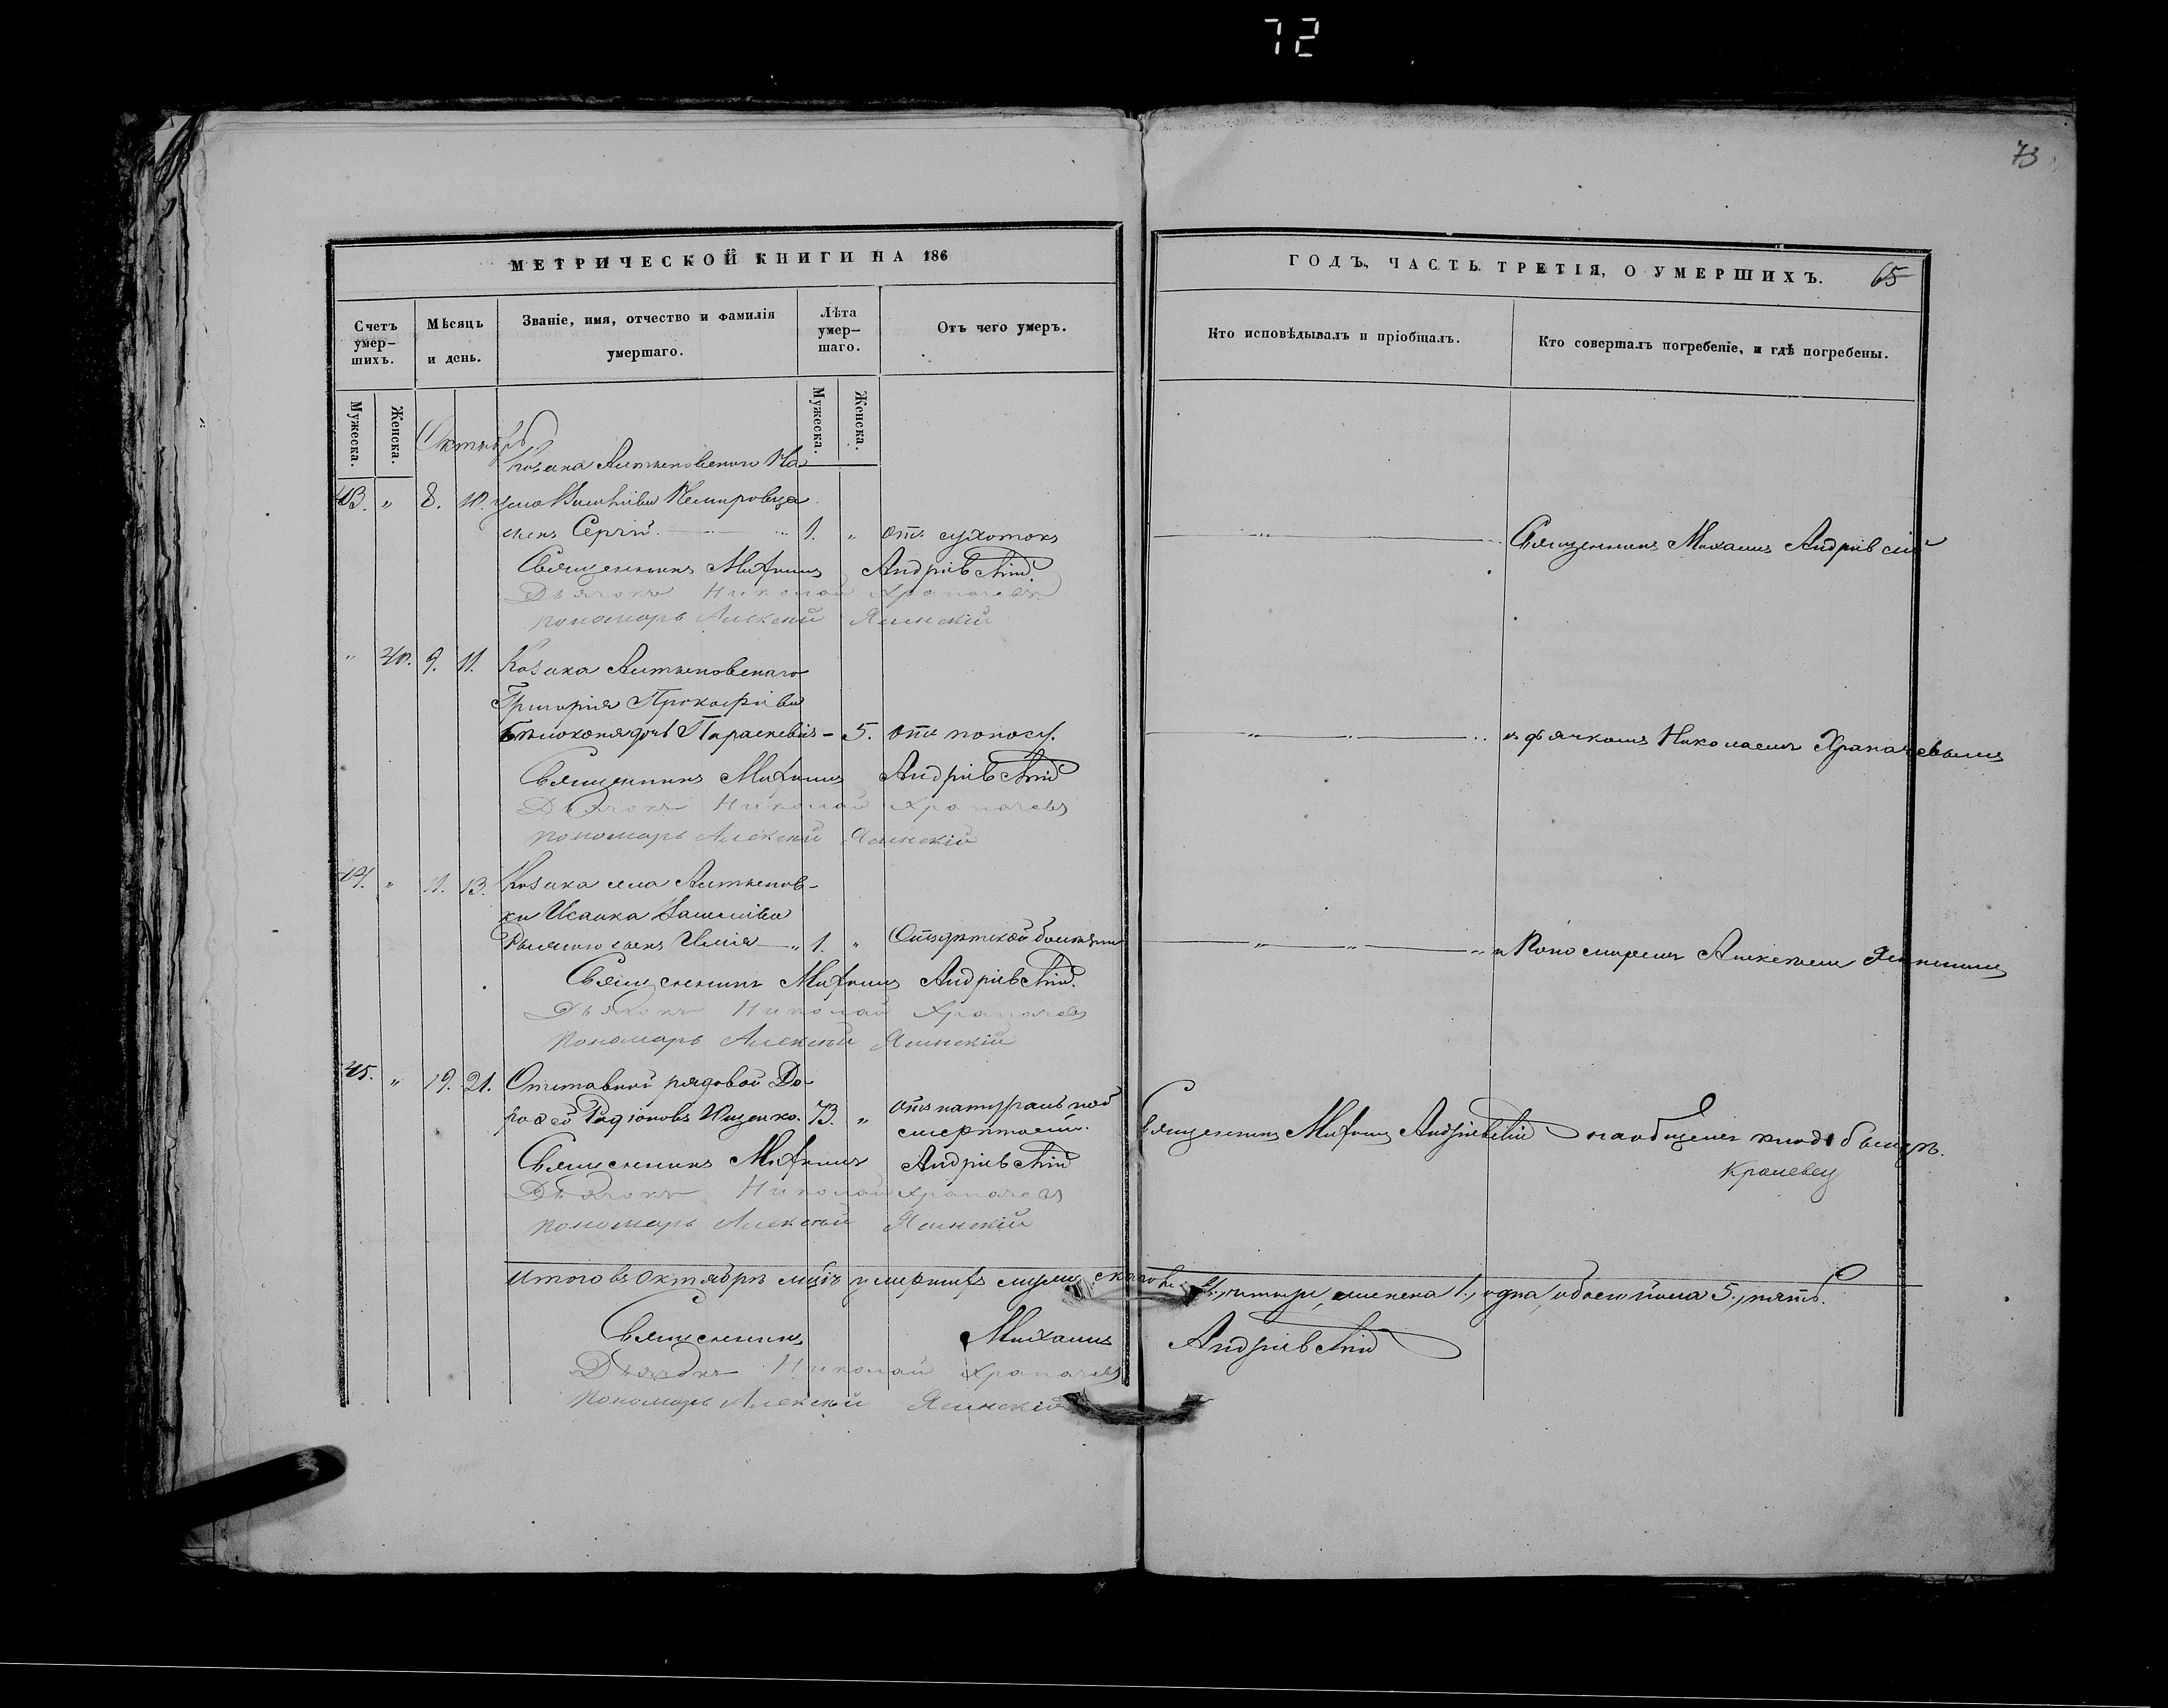 72
73
МЕТРИЧЕСКОЙ КНИГИ НА 186
ГОДЪ, ЧАСТЬ ТРЕТІЯ, О УМЕРШИХЪ. 65
Счетъ умер–шихъ.
Мѣсяцъ и день.
Званіе, имя, отчество и фамилія умершаго.
Лѣта умер–шаго.
Отъ чего умеръ.
Кто исповѣдывалъ и пріобщалъ.
Кто совершалъ погребеніе, и гдѣ погребены.
Мужеска. Женска. Мужеска. Женска.
Октябрь
Козака
43. „ 8. 10.
сынъ Сергій. 1. „ отъ сухотокъ
Священникъ Михаилъ Андріевскій
Священникъ Михаилъ Андріевскій.
Дьячокъ Николай Храпачевъ
пономарь Алексѣй Ясинскій
„ 40. 9. 11. Козака
Григорія Прокофіева
дочь Параскевія – 5. отъ поноса.
и дьячкомъ Николаемъ Храпачевымъ
Священникъ Михаилъ Андріевскій
Дьячокъ Николай Храпачевъ
пономарь Алексѣй Ясинскій
44. „ 11. 13. Козака села
ки Исаака
сынъ Илія „ 1. „ Отъ дѣтской болѣзни
и Пономаремъ Алексѣемъ Ясинскимъ
Священникъ Михаилъ Андріевскій.
Дьячокъ Николай Храпачевъ
Пономарь Алексѣй Ясинскій
45. „ 19. 21. Отставной рядовой До-
рофей Родіоновъ Ищенко. 73. „ отъ натуральной
смертостій.
Священникъ Михаилъ Андріевскій на общемъ кладбищѣ.
Кролевец
Священникъ Михаилъ Андріевскій
Дьячокъ Николай Храпачевъ
пономарь Алексѣй Ясинскій
Итого въ Октябрѣ м̃цѣ умершихъ мужескаго 4., четыре, женска 1., одна, обоего пола 5., пять.
Священникъ Михаилъ Андріевскій
Дьячокъ Николай Храпачевъ
Пономарь Алексѣй Ясинскій